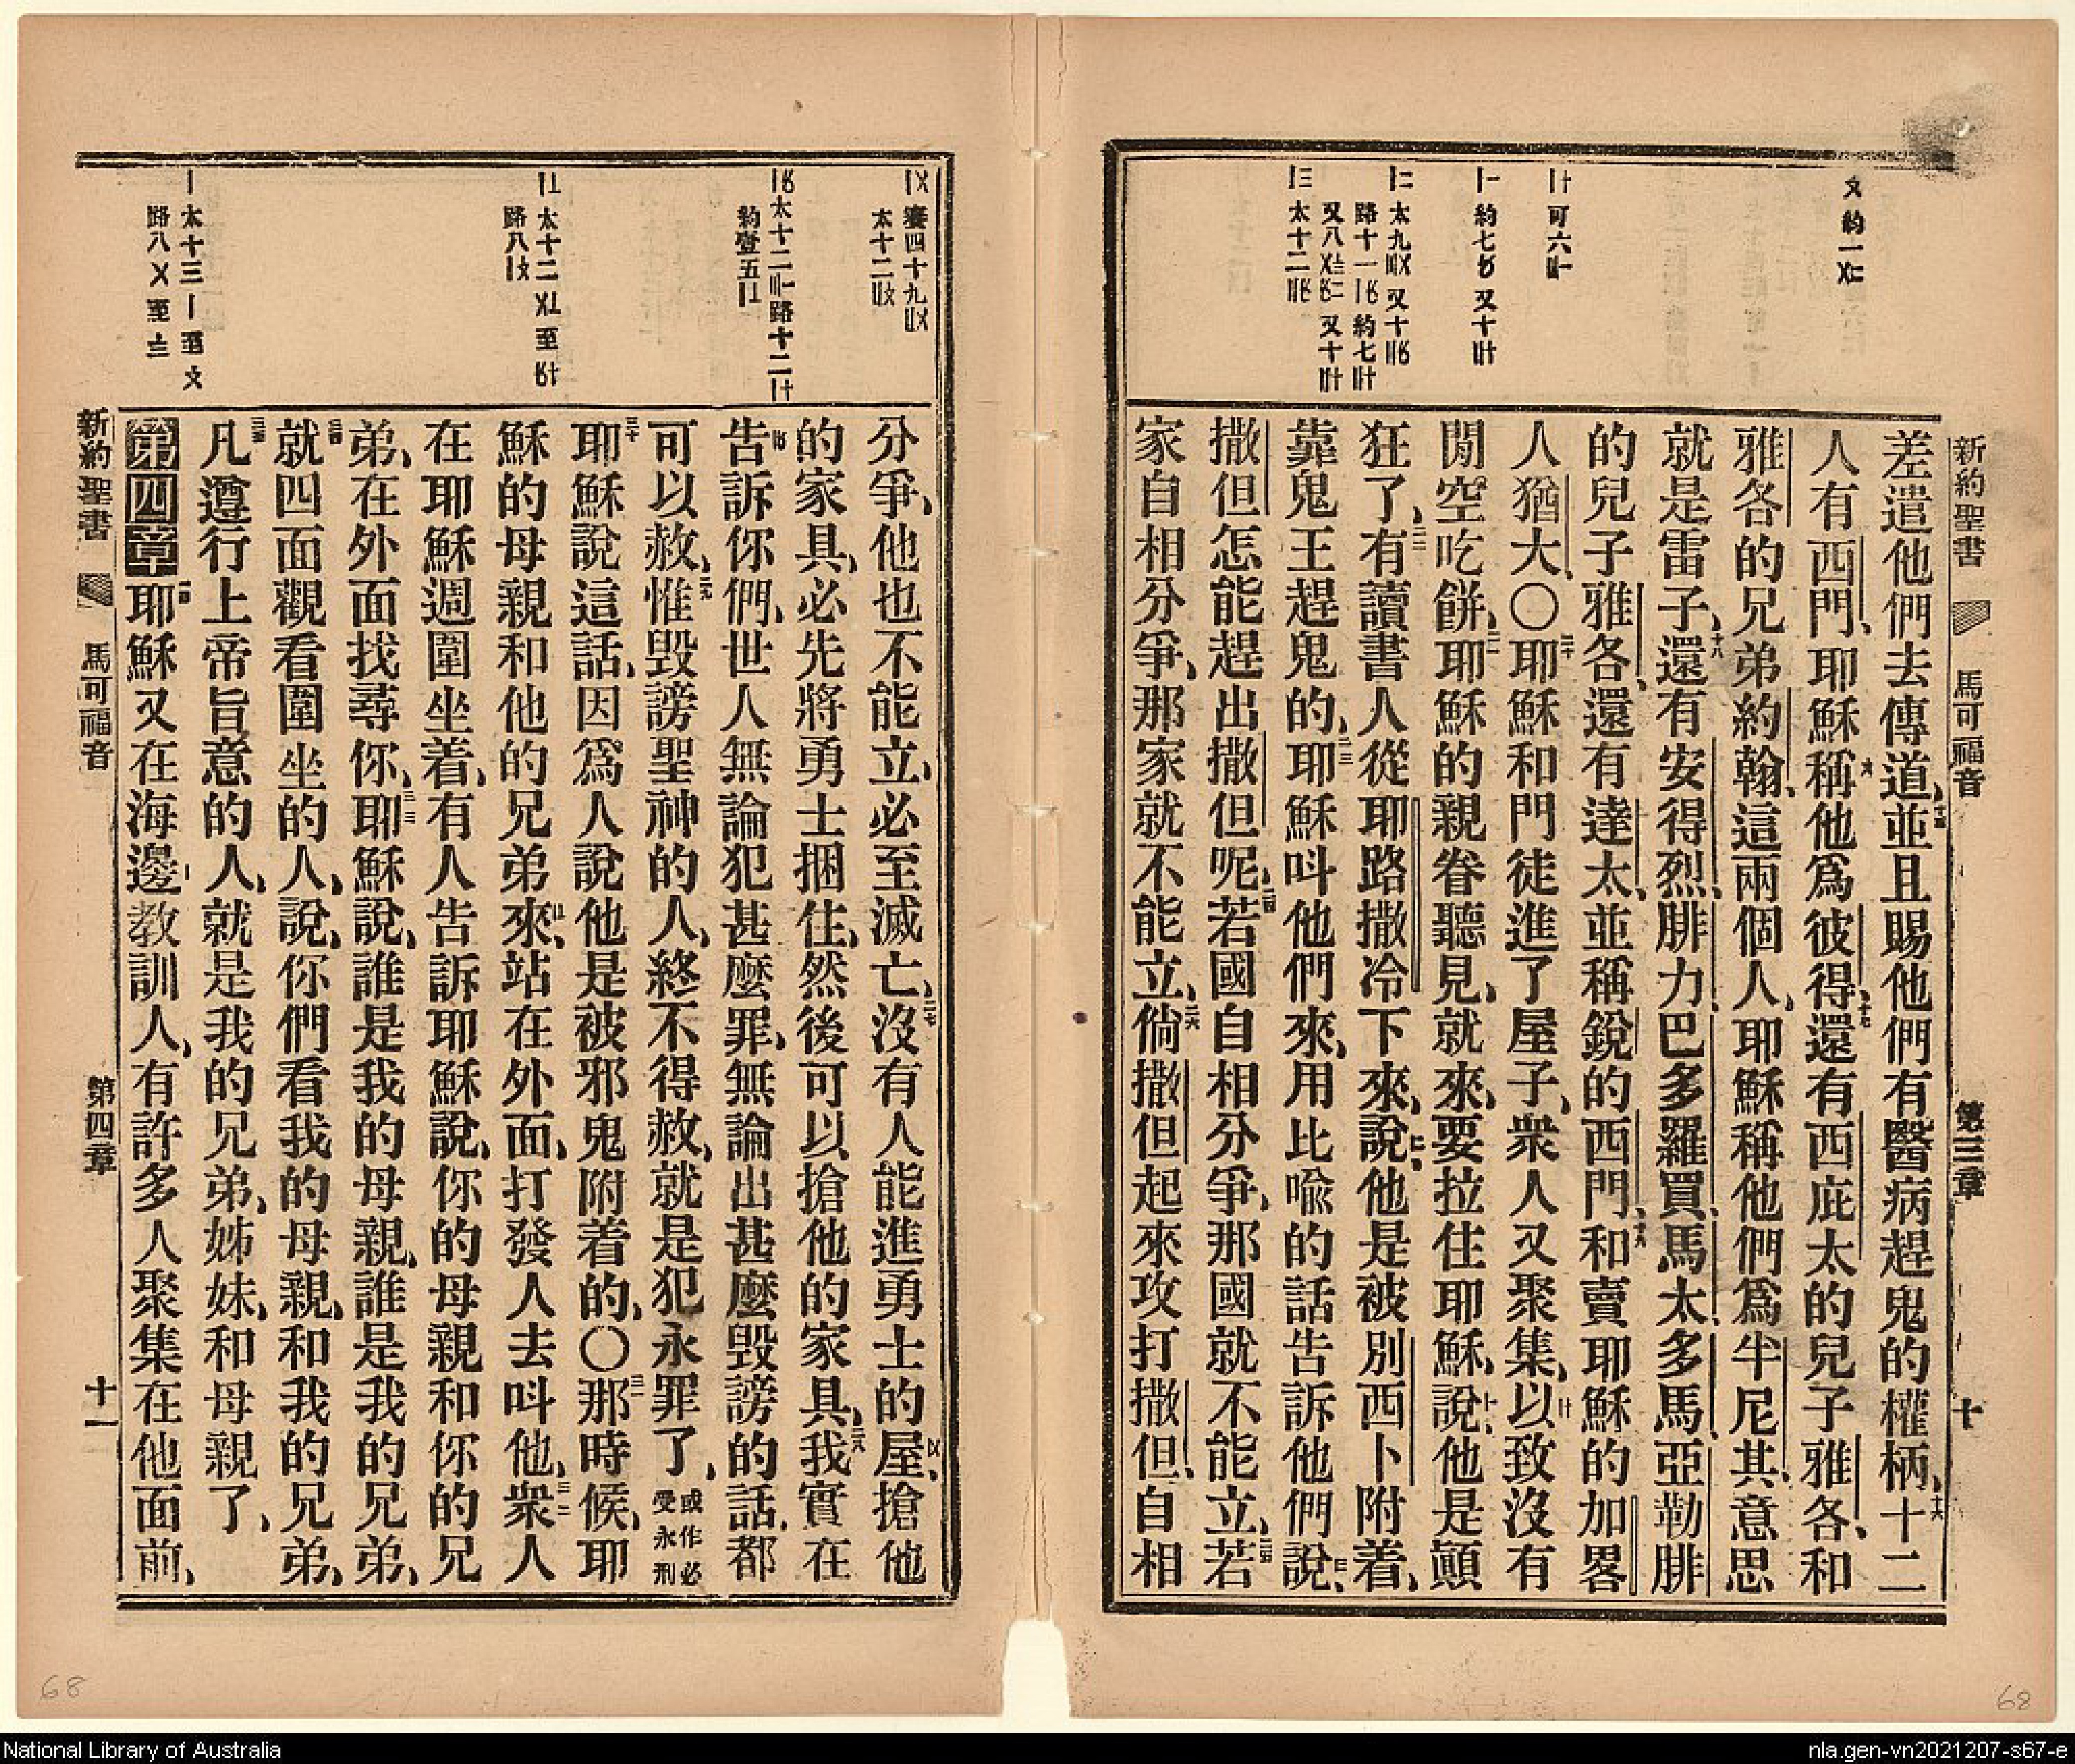 新約聖書 馬可福音 第三章 十
差遣他們去傳道、十五並且賜他們有醫病趕鬼的權柄、十六十二
人有西門、耶穌稱他爲彼得、十七還有西庇太的兒子雅各、和
雅各的兄弟約翰、這兩個人、耶穌稱他們爲半尼其、意思
就是雷子、十八還有安得烈、腓力、巴多羅買、馬太、多馬、亞勒腓
的兒子雅各、還有達太、並稱銳的西門、十九和賣耶穌的加畧
人猶大、〇二十耶穌和門徒進了屋子、衆人又聚集、以致沒有
閒空吃餅、二一耶穌的親眷聽見、就來、要拉住耶穌、說、他是顛
狂了、二二有讀書人從耶路撒冷下來、說、他是被別西卜附着、
靠鬼王趕鬼的、二三耶穌呌他們來、用比喻的話告訴他們說、
撒但怎能趕出撒但呢、二四若國自相分爭、那國就不能立、二五若
家自相分爭、那家就不能立、二六倘撒但起來攻打撒但、自相
分爭、他也不能立、必至滅亡、二七沒有人能進勇士的屋、搶他
的家具、必先將勇士捆住、然後可以搶他的家具、二八我實在
告訴你們、世人無論犯甚麼罪、無論出甚麼毀謗的話、都
可以赦、二九惟毀謗聖神的人、終不得赦、就是犯永罪了、或作必受永刑
三十耶穌說這話、因爲人說他是被邪鬼附着的、〇三一那時候、耶
穌的母親和他的兄弟來、站在外面、打發人去呌他、三二衆人
在耶穌週圍坐着、有人告訴耶穌說、你的母親和你的兄
弟、在外面找尋你、三三耶穌說、誰是我的母親、誰是我的兄弟、
三四就四面觀看圍坐的人、說、你們看我的母親、和我的兄弟、
三五凡遵行上帝旨意的人、就是我的兄弟、姊妹、和母親了、
第四章 一耶穌又在海邊教訓人、有許多人聚集在他面前、
新約聖書 馬可福音 第四章 十一
68
68
National Library of Australia
nla.gen-vn2021207-s67-e